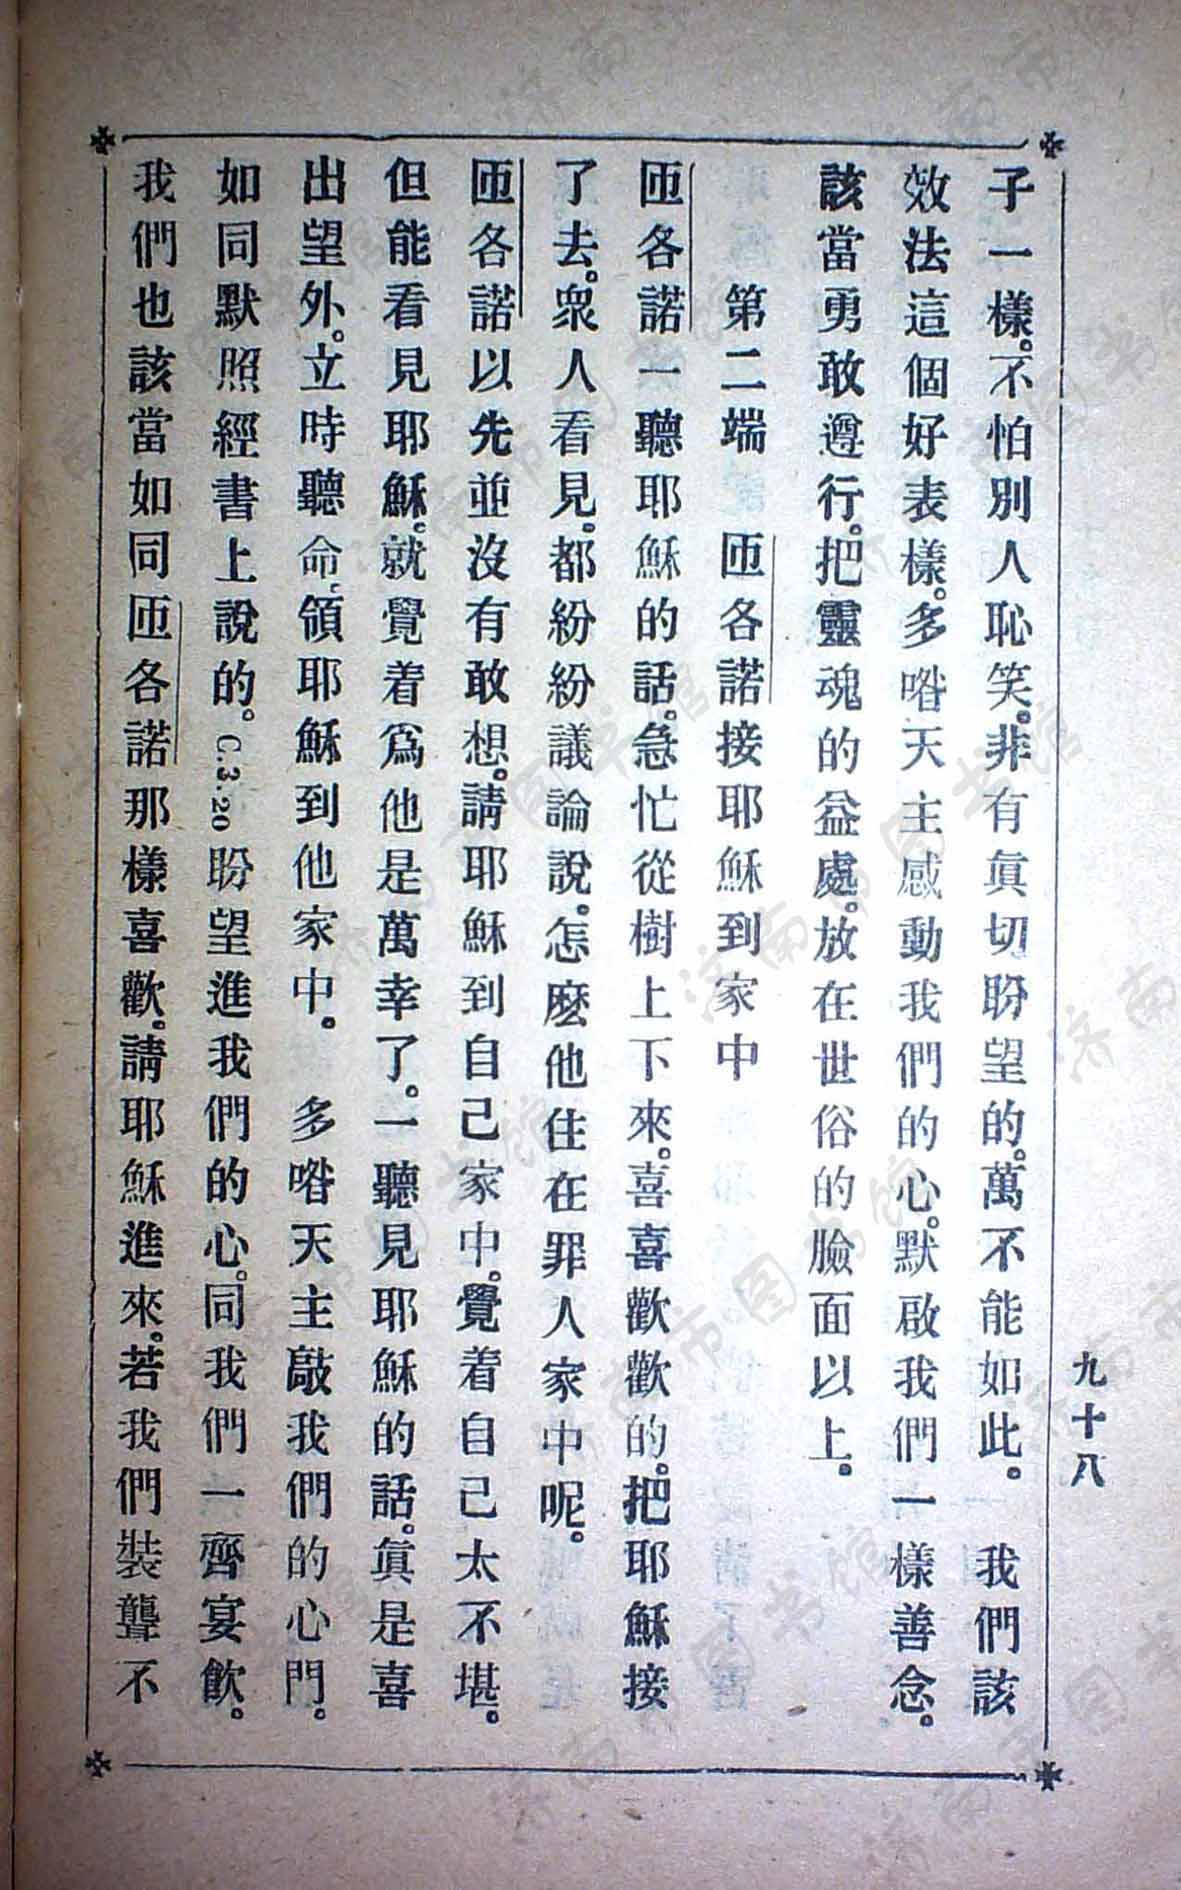 九十八
子一樣。不怕別人恥笑。非有眞切盼望的。萬不能如此。 我們該
效法這個好表樣。多喒天主感動我們的心。默啟我們一樣善念。
該當勇敢遵行。把靈魂的益處。放在世俗的臉面以上。
第二端 匝各諾接耶穌到家中
匝各諾一聽耶穌的話。急忙從樹上下來。喜喜歡歡的。把耶穌接
了去。衆人看見。都紛紛議論說。怎麽他住在罪人家中呢。
匝各諾以先並沒有敢想。請耶穌到自己家中。覺着自己太不堪。
但能看見耶穌。就覺着爲他是萬幸了。一聽見耶穌的話。眞是喜
出望外。立時聽命。領耶穌到他家中。 多喒天主敲我們的心門。
如同默照經書上說的。C.3.20盼望進我們的心。同我們一齊宴飮。
我們也該當如同匝各諾那樣喜歡。請耶穌進來。若我們裝聾不
济南市图书馆